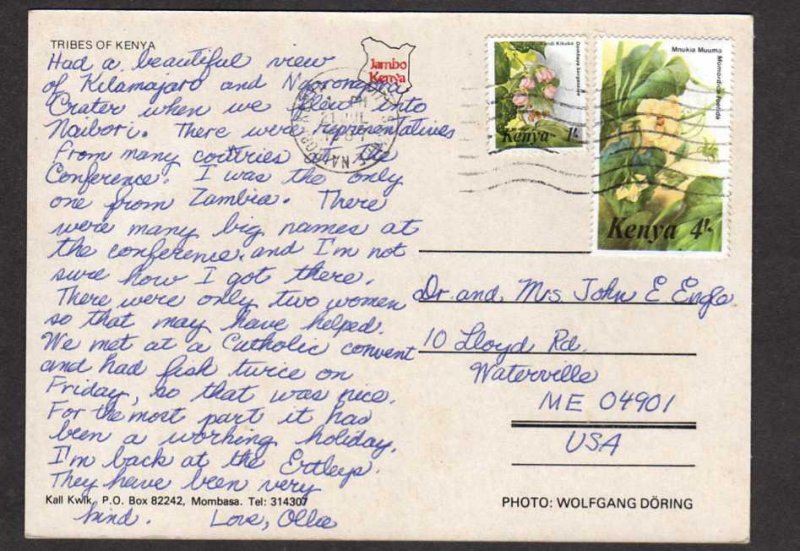 TRIBES OF KENYA
Had a beautiful view
of Kilamajaro and Ngorongra
Crater when we flew into
Naibori. There were representatives
from many coutries at the
Conference. I was the only
one from Zambia. There
were many big names at
the conference and I'm not
sure how I got there.
There were only two women
so that may have helped.
We met at a Catholic convent
and had fish twice on
Friday, so that was nice.
For the most part it has
been a working holiday.
I'm back at the Ertleys.
They have been very
kind. Love, Ollie
Kall Kwik, P.O. Box 82242, Mombasa. Tel: 314307
Jambo
Kenya
21 JUL
Kenya 1/-
Mnukia Muuma
Kenya 4/-
Dr. and Mrs John E Engle
10 Lloyd Rd.
Waterville
ME 04901
USA
PHOTO: WOLFGANG DÖRING